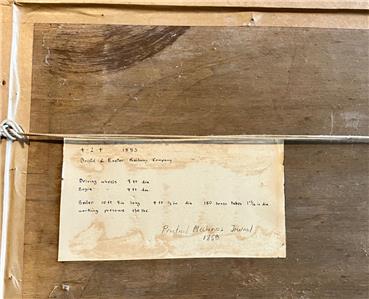 4-2-4 1853
Bristol & Exeter Railway Company
Driving wheels 9 ft dia
Bogie " 4 ft dia
Boiler 10 ft 9 in long 4 ft ½ in dia 180 brass tubes 1 in dia
working pressure
Practical Mechanics Journal
1868